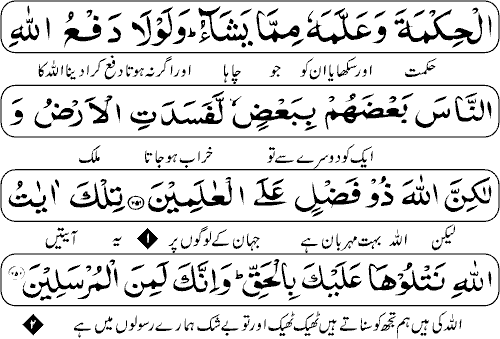 الْحِكْمَةَ وَعَلَّمَهٗ مِمَّا يَشَآءُ ؕ وَلَوْلَا دَفْعُ اللّٰهِ
حکمت اور سکھایا ان کو جو چاہا اور اگر نہ ہوتا دفع کرا دینا اللہ کا
النَّاسَ بَعْضَهُمْ بِبَعْضٍ لَّفَسَدَتِ الْاَرْضُ وَ
ایک کو دوسرے سے تو خراب ہو جاتا ملک
لٰكِنَّ اللّٰهَ ذُوْ فَضْلٍ عَلَى الْعٰلَمِيْنَ ۝۲۵۱ تِلْكَ اٰيٰتُ
لیکن اللہ بہت مہربان ہے جہان کے لوگوں پر ۱ یہ آیتیں
اللّٰهِ نَتْلُوْهَا عَلَيْكَ بِالْحَقِّ ؕ وَاِنَّكَ لَمِنَ الْمُرْسَلِيْنَ ۝۲۵۲
اللہ کی ہیں ہم تجھ کو سناتے ہیں ٹھیک ٹھیک اور تو بے شک ہمارے رسولوں میں ہے ۲